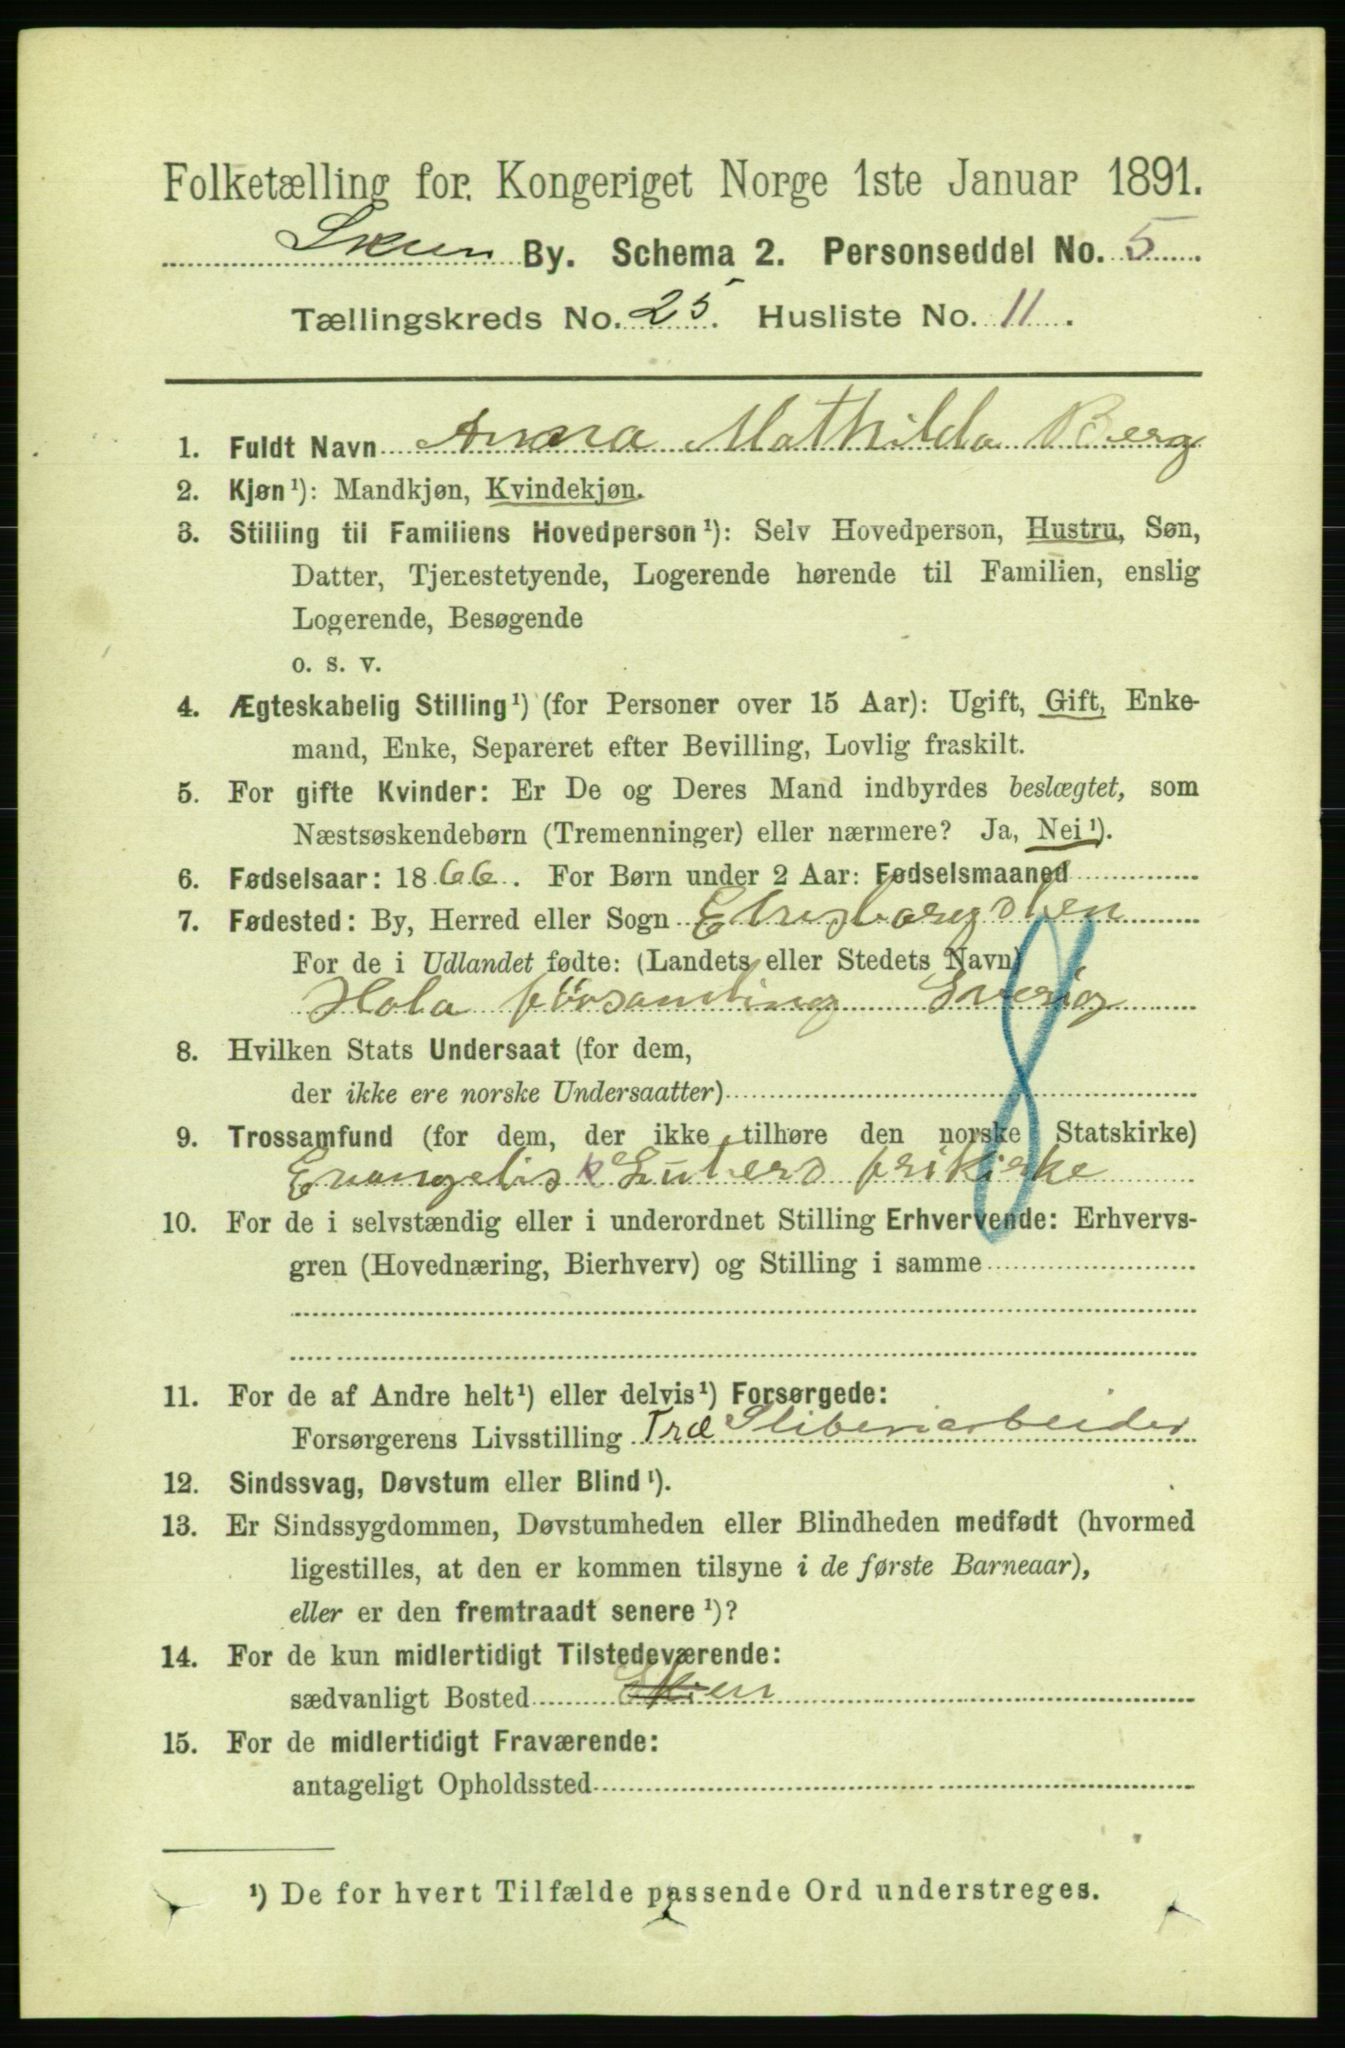 Folketælling for Kongeriget Norge 1ste Januar 1891.
Skien By. Schema 2. Personseddel No. 5.
Tællingskreds No. 25. Husliste No. 11.
1. Fuldt Navn Anna Mathilda Berg
2. Kjøn¹): Mandkjøn, Kvindekjøn.
3. Stilling til Familiens Hovedperson¹): Selv Hovedperson, Hustru, Søn,
Datter, Tjenestetyende, Logerende hørende til Familien, enslig
Logerende, Besøgende
o. s. v.
4. Ægteskabelig Stilling¹) (for Personer over 15 Aar): Ugift, Gift, Enke-
mand, Enke, Separeret efter Bevilling, Lovlig fraskilt.
5. For gifte Kvinder: Er De og Deres Mand indbyrdes beslægtet, som
Næstsøskendebørn (Tremenninger) eller nærmere? Ja, Nei¹).
6. Fødselsaar: 1866. For Børn under 2 Aar: Fødselsmaaned
7. Fødested: By, Herred eller Sogn Elvsborgslen
For de i Udlandet fødte: (Landets eller Stedets Navn)
Hola församling Sverig
8. Hvilken Stats Undersaat (for dem,
der ikke ere norske Undersaatter)
9. Trossamfund (for dem, der ikke tilhøre den norske Statskirke)
Evangelisk Luters frikirke
10. For de i selvstændig eller i underordnet Stilling Erhvervende: Erhvervs-
gren (Hovednæring, Bierhverv) og Stilling i samme
11. For de af Andre helt¹) eller delvis¹) Forsørgede:
Forsørgerens Livsstilling Træ Sliberiarbeider
12. Sindssvag, Døvstum eller Blind¹).
13. Er Sindssygdommen, Døvstumheden eller Blindheden medfødt (hvormed
ligestilles, at den er kommen tilsyne i de første Barneaar),
eller er den fremtraadt senere¹)?
14. For de kun midlertidigt Tilstedeværende:
sædvanligt Bosted Skien
15. For de midlertidigt Fraværende:
antageligt Opholdssted
¹) De for hvert Tilfælde passende Ord understreges.